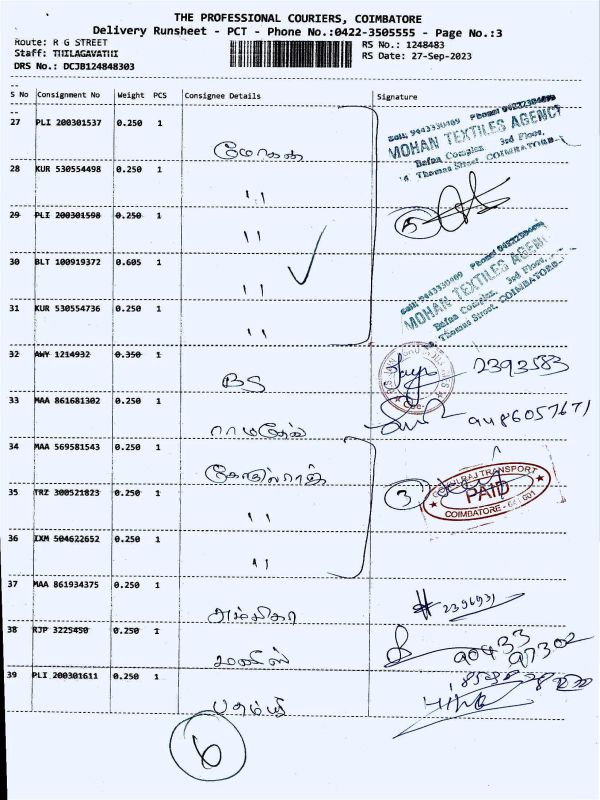 THE PROFESSIONAL COURIERS, COIMBATORE
Delivery Runsheet - PCT - Phone No.:0422-3505555 - Page No.:3
Route: R G STREET
Staff: THILAGAVATHI
DRS No.: DCJB124848303
RS No.: 1248483
RS Date: 27-Sep-2023
S No Consignment No Weight PCS Consignee Details Signature
27 PLI 200301537 0.250 1
மோகன்
MOHAN TEXTILES AGENCY
Bafna Complex, 3rd Floor,
Thomas Street, COIMBATORE-
28 KUR 530554498 0.250 1
"
5
29 PLI 200301598 0.250 1
"
30 BLT 100919372 0.605 1
"
MOHAN TEXTILES AGENCY
Bafna Complex, 3rd Floor,
Thomas Street, COIMBATORE-
31 KUR 530554736 0.250 1
"
32 AWY 1214932 0.350 1
BS
2393583
33 MAA 861681302 0.250 1
ராமகேஷ்
9486057671
34 MAA 569581543 0.250 1
கோகுல்ராஜ்
3
GOKULRAJ TRANSPORT
PAID
COIMBATORE - 641 001
35 TRZ 300521823 0.250 1
"
36 IXM 504622652 0.250 1
"
37 MAA 861934375 0.250 1
அம்பிகா
2396931
38 RJP 3225450 0.250 1
90433
97302
39 PLI 200301611 0.250 1
6